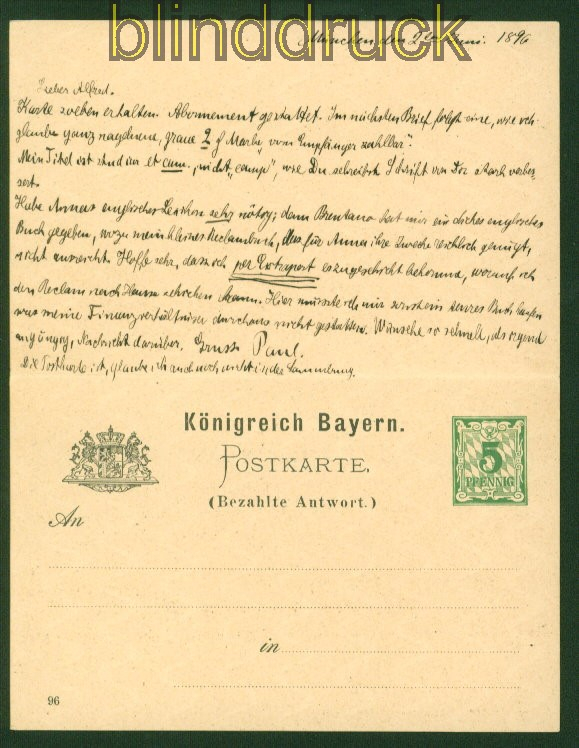 blinddruck
München, den 2ten Juni. 1896
Lieber Alfred.
Karte soeben erhalten. Abonnement gestattet. Im nächsten Brief folgt eine, wie ich
glaube ganz nagelneue, graue 2 M Marke, vom Empfänger zahlbar".
Mein Titel ist stud iur et cam. "nicht "camp", wie Du schreibst. Schrift von Dir stark verbes-
sert.
Habe Annas englisches Lexikon sehr nötig; denn Brentano hat mir ein dickes englisches
Buch gegeben, wozu mein kleines Reclambuch, das für Anna ihre Zwecke reichlich genügt,
nicht ausreicht. Hoffe sehr, dass ich per Extrapost es zugeschickt bekomme, worauf ich
den Reclam nach Hause schicken kann. Hier müsste ich mir sonst ein teures Buch kaufen
was meine Finanzverhältnisse durchaus nicht gestatten. Wünsche so schnell, als irgend
angängig, Nachricht darüber. Gruss Paul.
Die Postkarte ist, glaube ich auch noch nicht in der Sammlung.
Königreich Bayern.
POSTKARTE.
(Bezahlte Antwort.)
5
PFENNIG
An
in
96